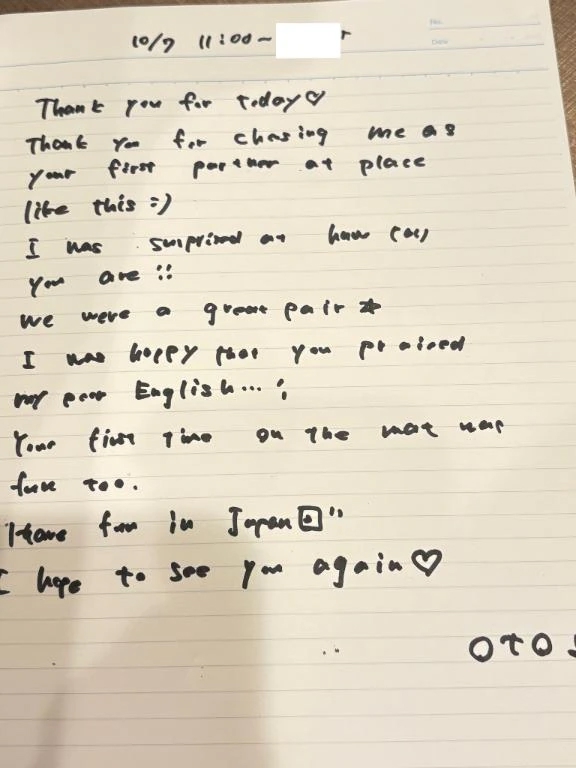 No.
Date
10/7 11:00~
Thank you for today♡
Thank you for chosing me as
your first partner at place
like this :)
I was surprised at how
you are !!
we were a great pair ☆
I was happy that you praised
my poor English... ;
Your first time on the mat was
fun too.
Have fun in Japan
I hope to see you again♡
OTO